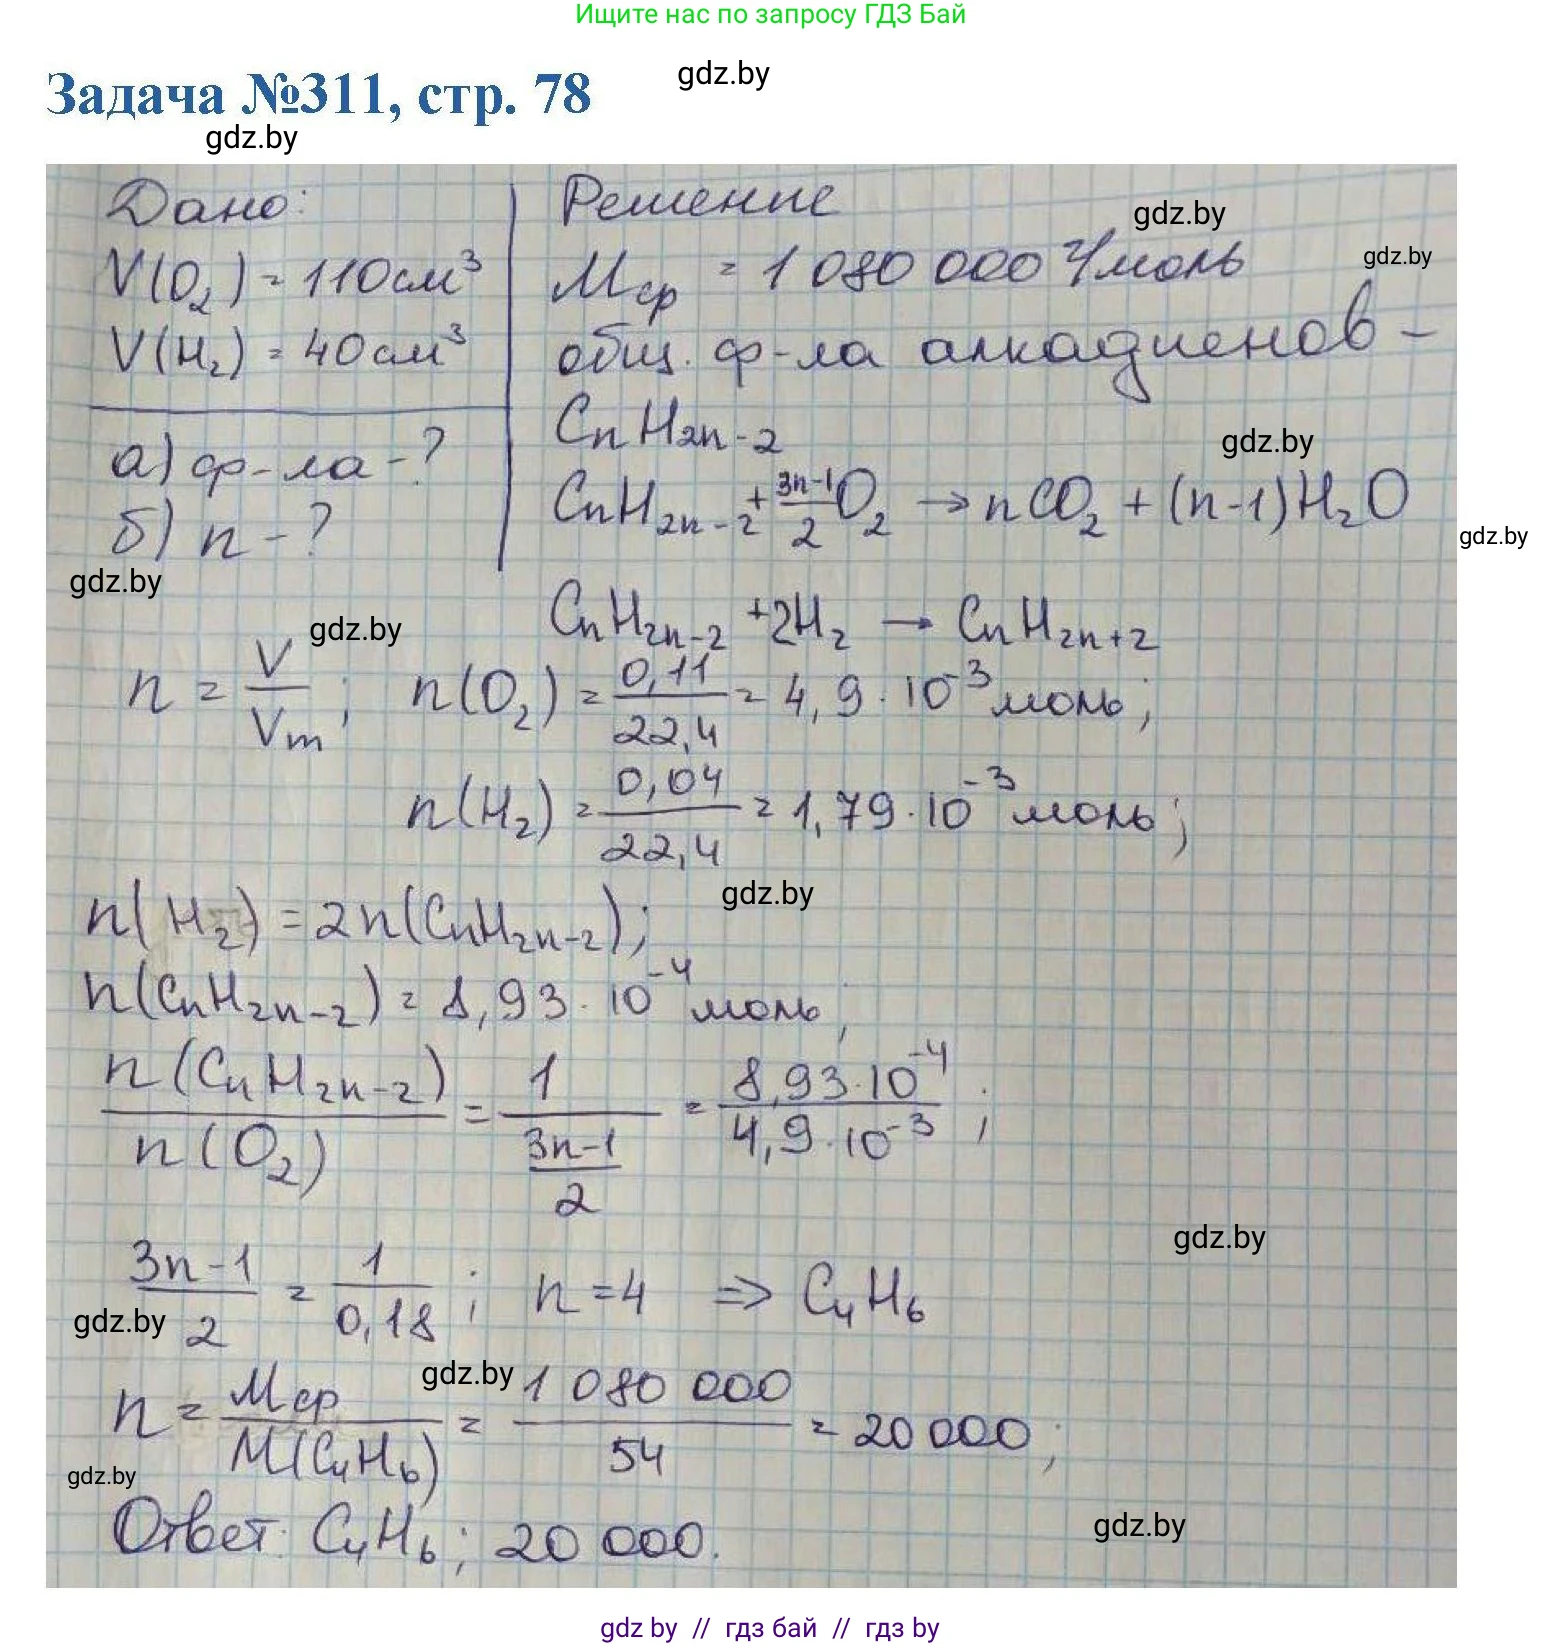 Ищите нас по запросу ГДЗ Бай
Задача №311, стр. 78
gdz.by
gdz.by
Дано:
V(O₂) = 110 см³
V(H₂) = 40 см³
а) ф-ла - ?
б) n - ?
Решение
gdz.by
Mср = 1 080 000 г/моль
gdz.by
общ. ф-ла алкадиенов –
CnH2n-2
gdz.by
CnH2n-2 + (3n-1)/2 O₂ → nCO₂ + (n-1)H₂O
gdz.by
gdz.by
CnH2n-2 + 2H₂ → CnH2n+2
gdz.by
n = V/Vm; n(O₂) = 0,11/22,4 = 4,9 · 10⁻³ моль;
n(H₂) = 0,04/22,4 = 1,79 · 10⁻³ моль;
gdz.by
n(H₂) = 2n(CnH2n-2);
n(CnH2n-2) = 8,93 · 10⁻⁴ моль;
n(CnH2n-2)/n(O₂) = 1/((3n-1)/2) = 8,93·10⁻⁴/4,9·10⁻³;
gdz.by
(3n-1)/2 = 1/0,18; n = 4 ⇒ C₄H₆
gdz.by
gdz.by
n = Mср/M(C₄H₆) = 1 080 000/54 = 20 000;
gdz.by
gdz.by
Ответ: C₄H₆; 20 000.
gdz by // гдз бай // гдз by